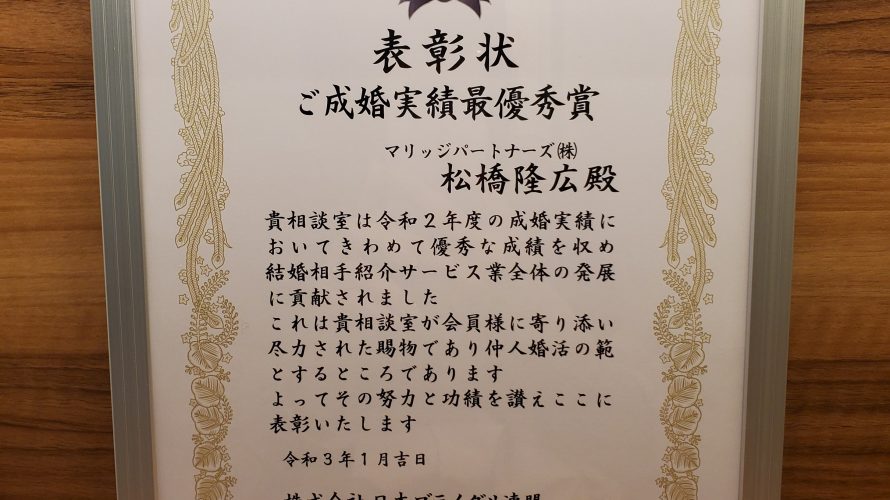 表彰状
ご成婚実績最優秀賞
マリッジパートナーズ㈱
松橋隆広殿
貴相談室は令和2年度の成婚実績に
おいてきわめて優秀な成績を収め
結婚相手紹介サービス業全体の発展
に貢献されました
これは貴相談室が会員様に寄り添い
尽力された賜物であり仲人婚活の範
とするところであります
よってその努力と功績を讃えここに
表彰いたします
令和3年1月吉日
株式会社日本ブライダル連盟